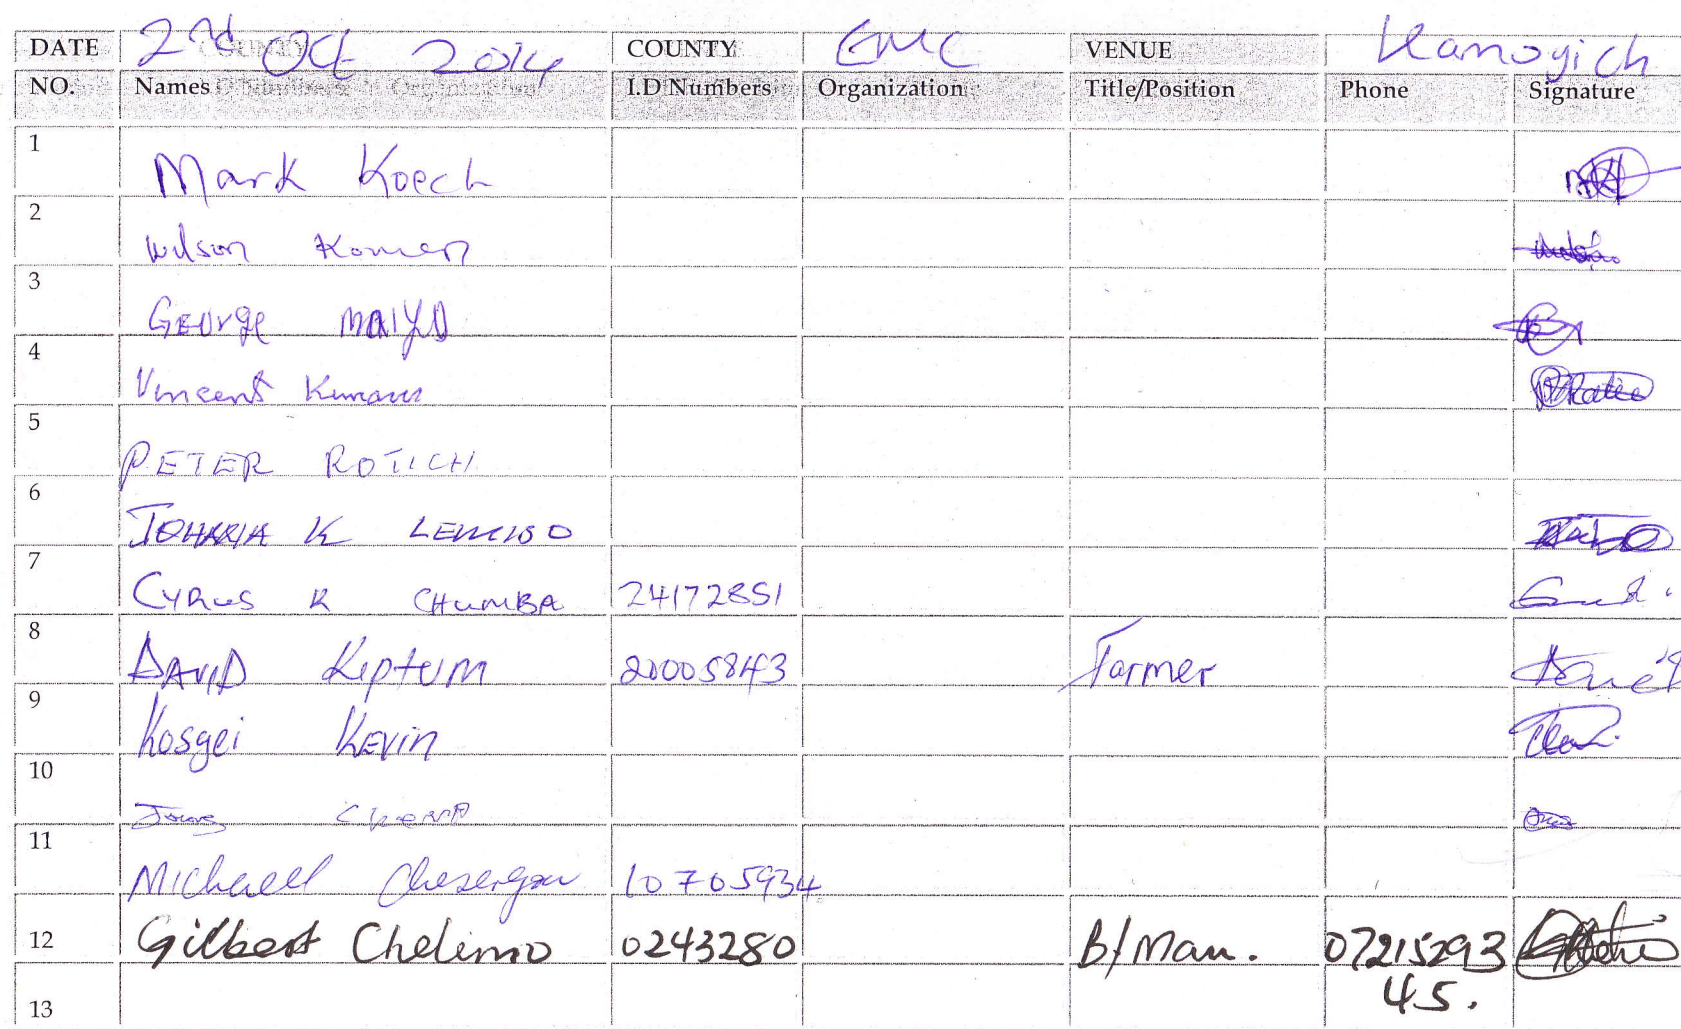 DATE 2nd Oct 2014 COUNTY EMC VENUE Kamogich
NO. Names I.D Numbers Organization Title/Position Phone Signature
1 Mark Koech
2 Wilson Komen
3 GEORge MAIYO
4 Vincent
5 PETER ROTICH
6 K
7 CYRUS R CHUMBA 24172851
8 DAVID Kiptum 20005843 Farmer
9 Kosgei KEVIN
10
11 Michaell 10705934
12 Gilbert Chelimo 0243280 B/Man. 07215293
45.
13